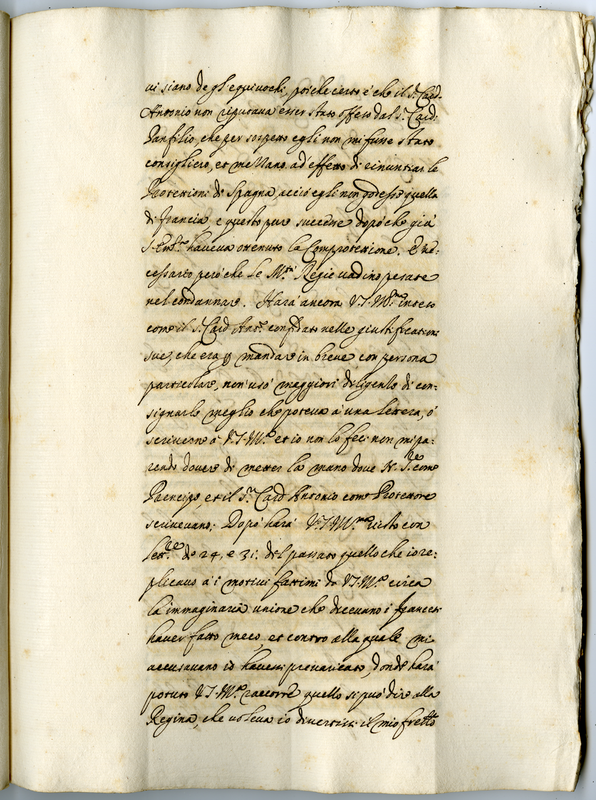 vi siano de gl'equivochi, poiche certo è che il S.r Card.
Antonio non riputava esser stato offeso dal S.r Card.
Panfilio, che per sospetto egli non mi fusse stato
consigliero, et mezzano ad effetto di rinuntiar le
Protettioni di Spagna, acciò egli non godesse quella
di francia, e questo pur successe dopò che già
S. Em.za haveva ottenuto la Comprotettione. È ne-
cessario però che le M.tà Regie vadino pesate
nel condannare. Harà ancora V.S. Ill.ma inteso
come il S. Card. Ant.o confidato nelle giustificationi
sue, che era p mandare in breve con persona
particolare, non usò maggiori diligenze di con-
signarle meglio che poteva à una lettera, ò
scrivere à V.S. Ill.ma et io non lo feci non mi pa-
rendo dovere di metter la mano dove N. S.re come
Principe, et il S.r Card. Antonio come Protettore
scrivevano; Dopò harà V.S. Ill.ma visto con
lett.re de 24, e 31 del passato quello che io re-
plicavo à i motivi fattimi da V.S. Ill.ma circa
la immaginaria unione che dicevano i francesi
haver fatto meco, et contro alla quale mi
accusavano io havessi prevaricato, donde harà
potuto V.S. Ill.ma raccorre quello si può dire alla
Regina, che voleva io divertissi il mio fratello